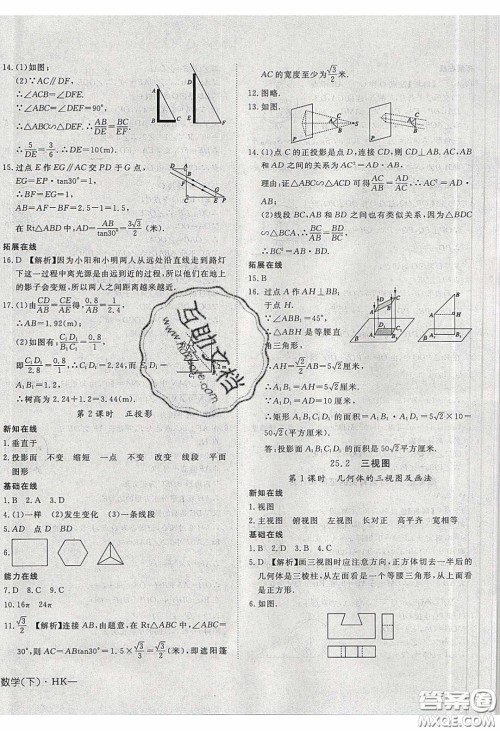 14.(1)如图:
(2)∵AC∥DF,
∴∠ACB=∠DFE.
∵∠ABC=∠DEF=90°,
∴△ABC∽△DEF.∴AB/DE=BC/EF,
∴5/DE=3/6∴DE=10(m).
15.过点E作EG∥AC交PD于G点,
EG=EP·tan30°=1.
∴BF=EG=1.
∴AB=AF-BF=2.5-1=1.5,
在Rt△ABD中,AD=AB/tan30°=3√3/2(米).
拓展在线
16.D 【解析】因为小阳和小明两人从远处沿直线走到路灯
下这一过程中离光源是由远到近的过程,所以他们在地上的
影子会变短,所以两人之间距离越来越近.
17.(1)由CD/AB=CE/AE得0.8/AB=1/2.4,
∴AB=1.92(米).
(2)如图,
即C₁D₁/
A₁B₁=1.2(米).
∴树高为2.24+1.2=3.44(m).
第2课时 正投影
新知在线
1.垂直于
2.投影面 不变 缩短 一点 不变 改变 线段 平面
图形
基础在线
1.B 2.A 3.D
4.(1)一样 (2)发生变化 (3)一条线段
5.AD 点D BD
6.
能力在线
7.D 8.D 9.D
10.16π 24π
11.√3/2 【解析】连接AB,由题意,在Rt△ABC中,∠ABC=
30°,则AC=ABtan30°=1.5×√3/3=√3/2(米),即遮阳篷
数学(下)·HK—
AC的宽度至少为√3/2米.
12.略.
13.如图.
14.(1)点C的正投影是点D,连接CD,则CD⊥AB.AC、AB
和AD之间的关系为AC²=AD·AB.
理由,证△ABC∽△ADC可得AC/AD=AB/AC,∴AC²=AD
·AB.
(2)线段BC,AB和BD之间也有类似关系,因为△ABC∽
△DBC,∴BC²=AB·BD.
拓展在线
15.B
16.过点A作AH⊥BB₁
于点H.
∵∠ABB₁=45°,
∴△ABH是等腰直
角三角形,
∴AH=√2/2AB=√2/2×10
=5√2厘米,
∴A₁B₁=AH=5√2厘米,
∵A₁D₁=AD=√100=10厘米,
∴矩形A₁B₁C₁D₁的面积=A₁B₁·A₁D₁=5√2×10=
50√2(平方厘米).
答:A₁B₁C₁D₁的面积是50√2平方厘米.
25.2 三视图
第1课时 几何体的三视图及画法
新知在线
1.视图
2.主视图 俯视图 左视图 长对正 高平齐 宽相等
基础在线
1.B 2.D 3.A 4.B
5.D 【解析】画三视图时应注意方向,正方体切去一半后的
几何体是三棱柱,从左面看是一个等腰三角形,从上面看是
一个矩形.
6.如图.
互助文档
www.hdzhge.com
答案圈
MXQE.COM